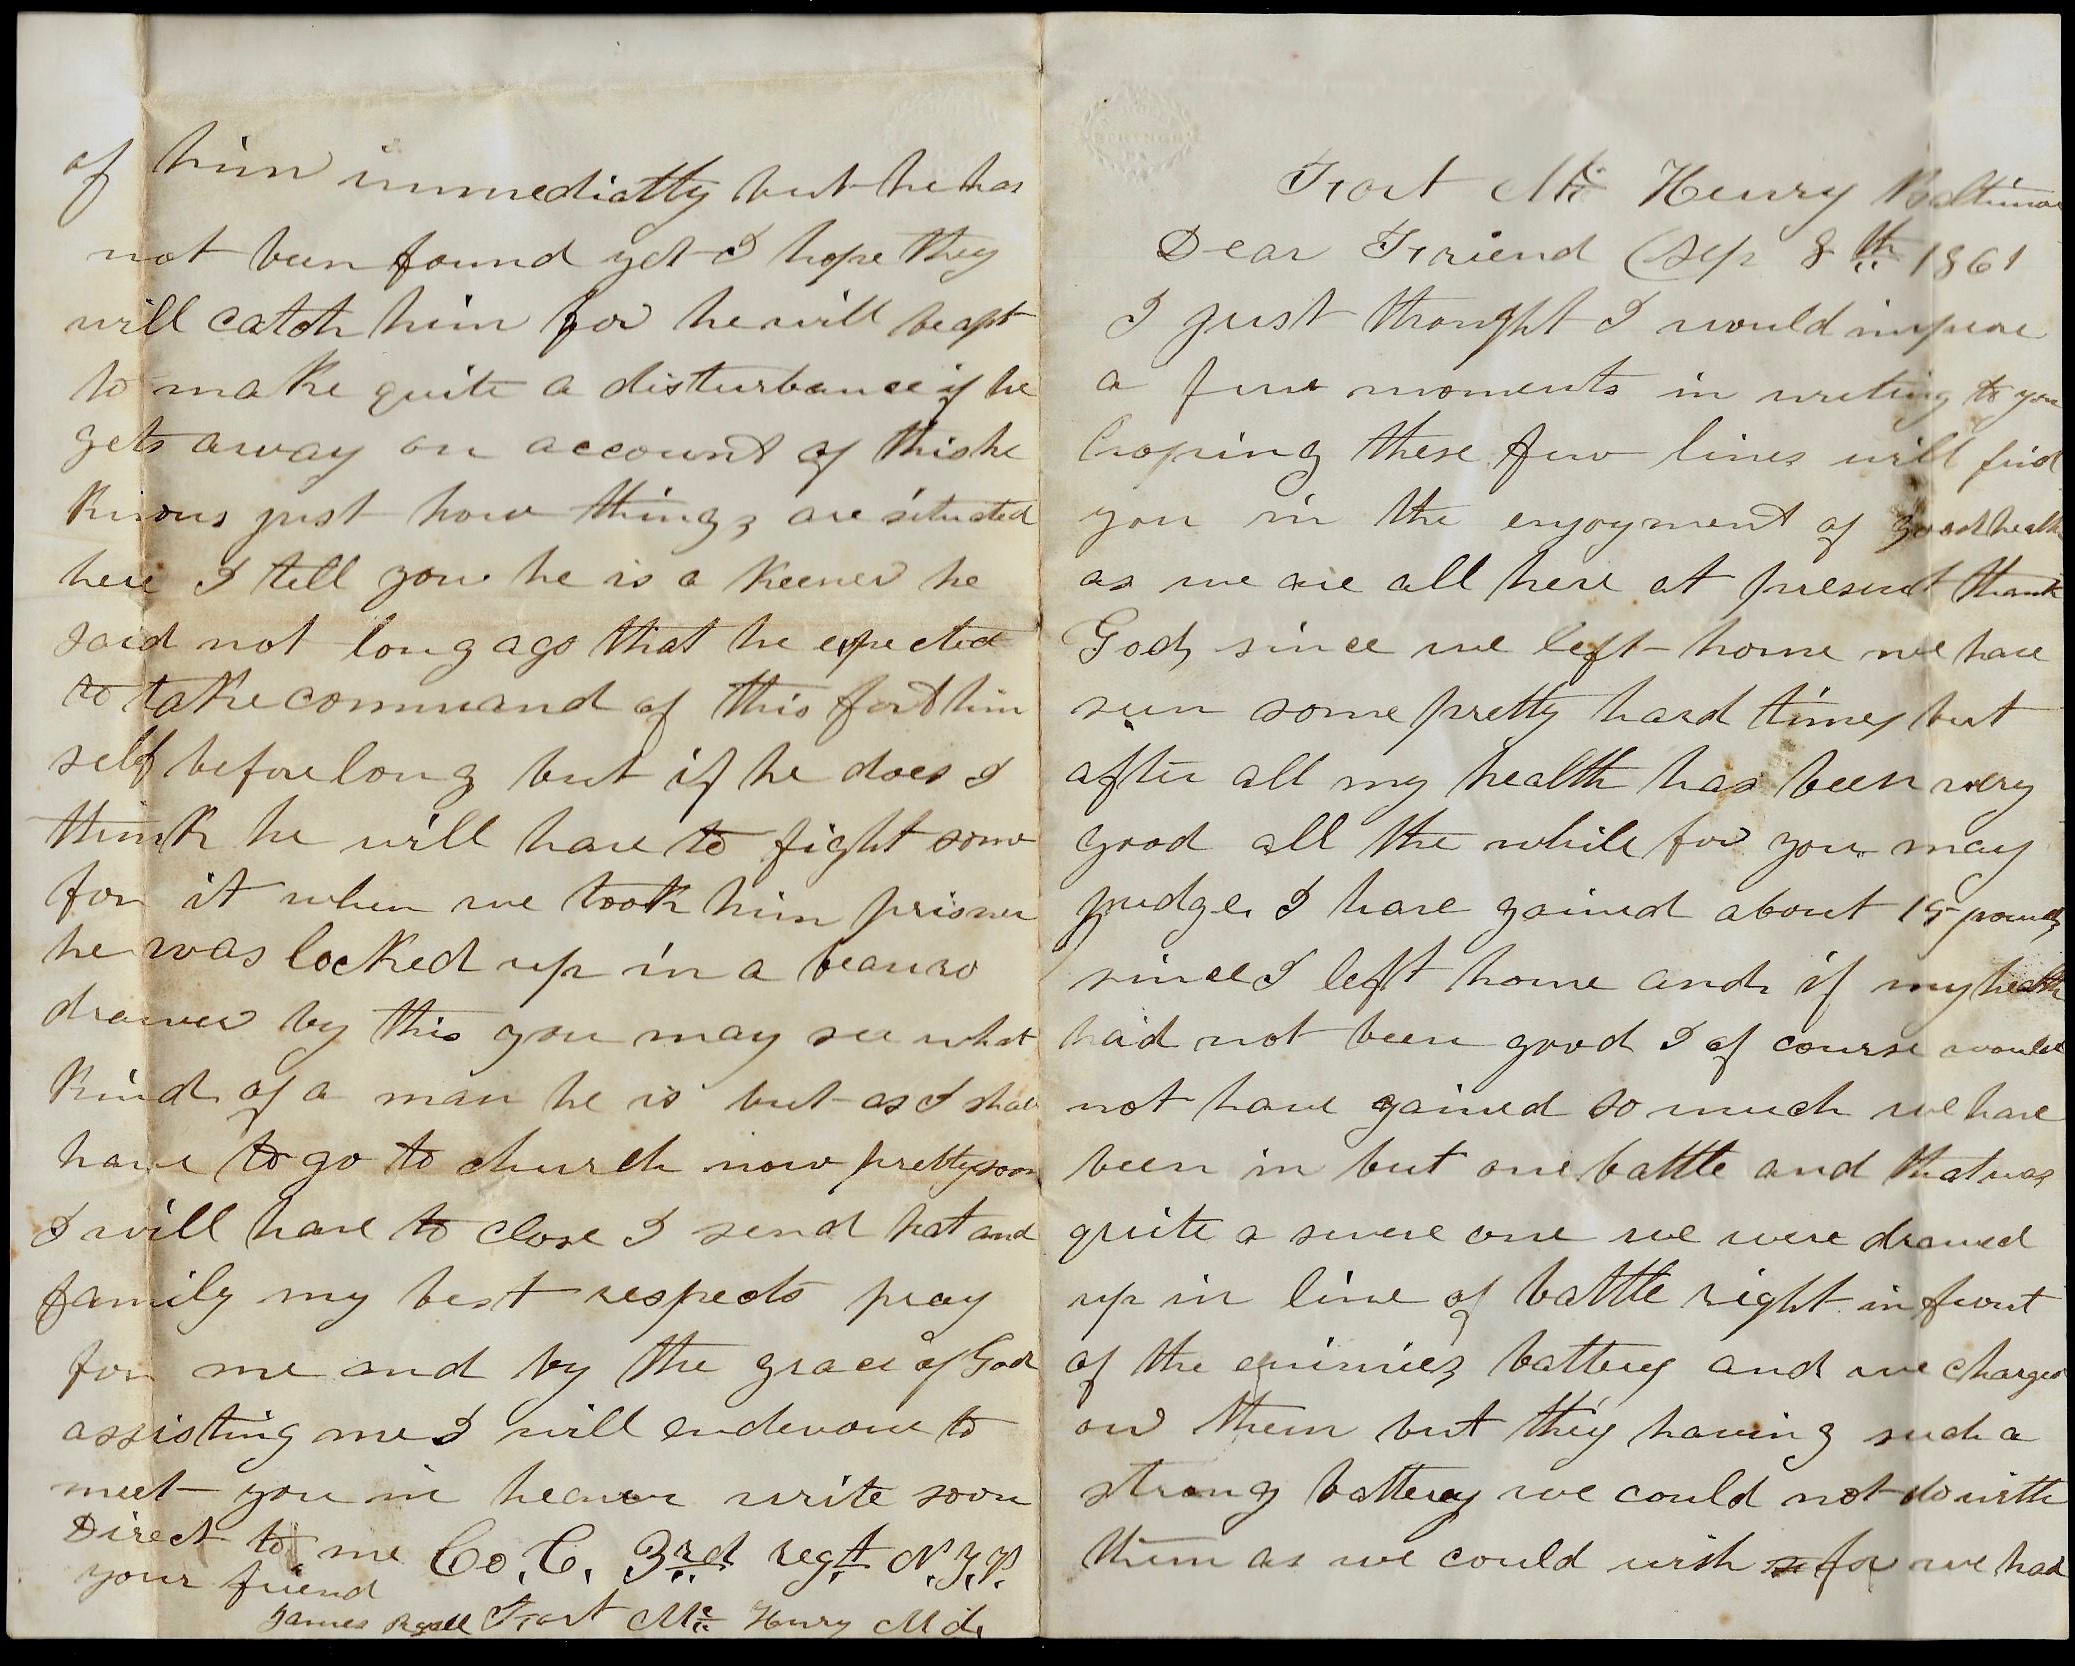 Fort Mc Henry Baltimore
Dear Friend Sep 8th 1861
I just thought I would impuve
a few moments in writing to you
hoping these few lines will find
you in the enjoyment of good health
as we are all here at present thank
God, since we left home we have
seen some pretty hard times but
after all my health has been very
good all the while for you may
judge I have gained about 15 pounds
since I left home and if my health
had not been good I of course would
not have gained so much we have
been in but one battle and that was
quite a severe one we were drawed
up in line of battle right in front
of the enimies battery and we charged
on them but they having such a
strong battery we could not do with
them as we could wish for we had
of him immediatty but he has
not been found yet I hope they
will catch him for he will be apt
to make quite a disturbance if he
gets away on account of this he
knows just how things are situated
here I tell you he is a keener he
said not long ago that he expected
to take command of this fort him
self before long but if he does I
think he will have to fight some
for it when we took him prisner
he was locked up in a beauro
drawer by this you may see what
kind of a man he is but as I shall
have to go to church now pretty soon
I will have to close I send hat and
family my best respects pray
for me and by the grace of God
assisting me I will endevour to
meet you in heaven write soon
Direct to me Co. C. 3rd regt N.Y.V.
your friend
James Fort Mc Henry Md.